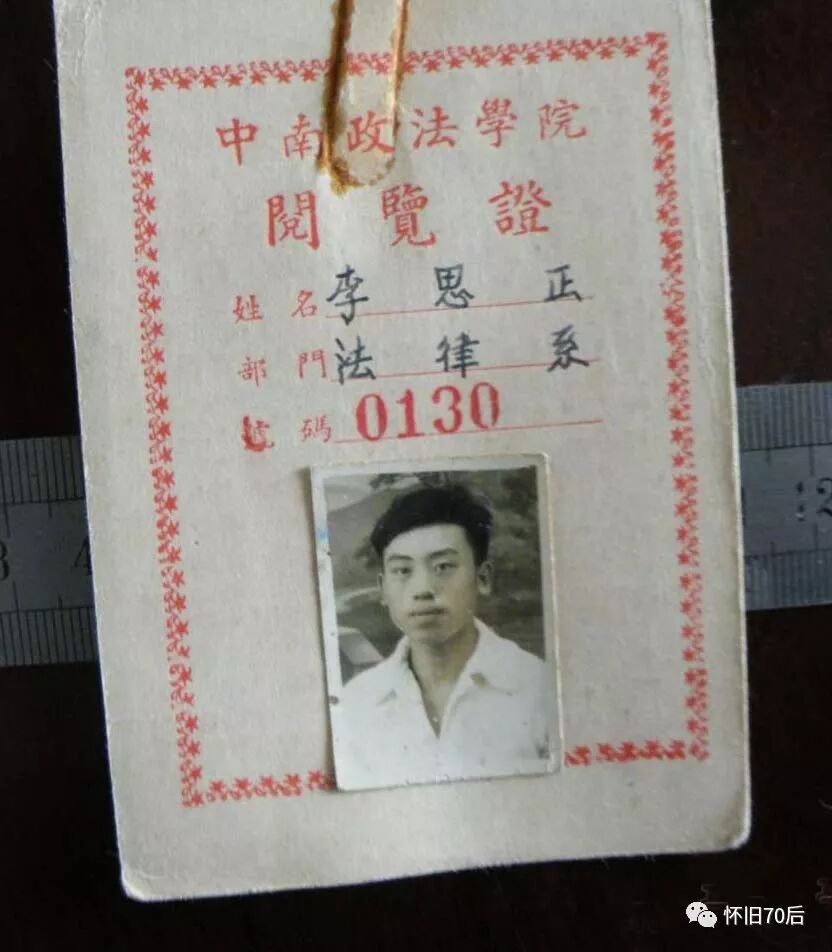 中南政法學院
閱覽證
姓名 李思正
部門 法律系
號碼 0130
3 4
12
怀旧70后